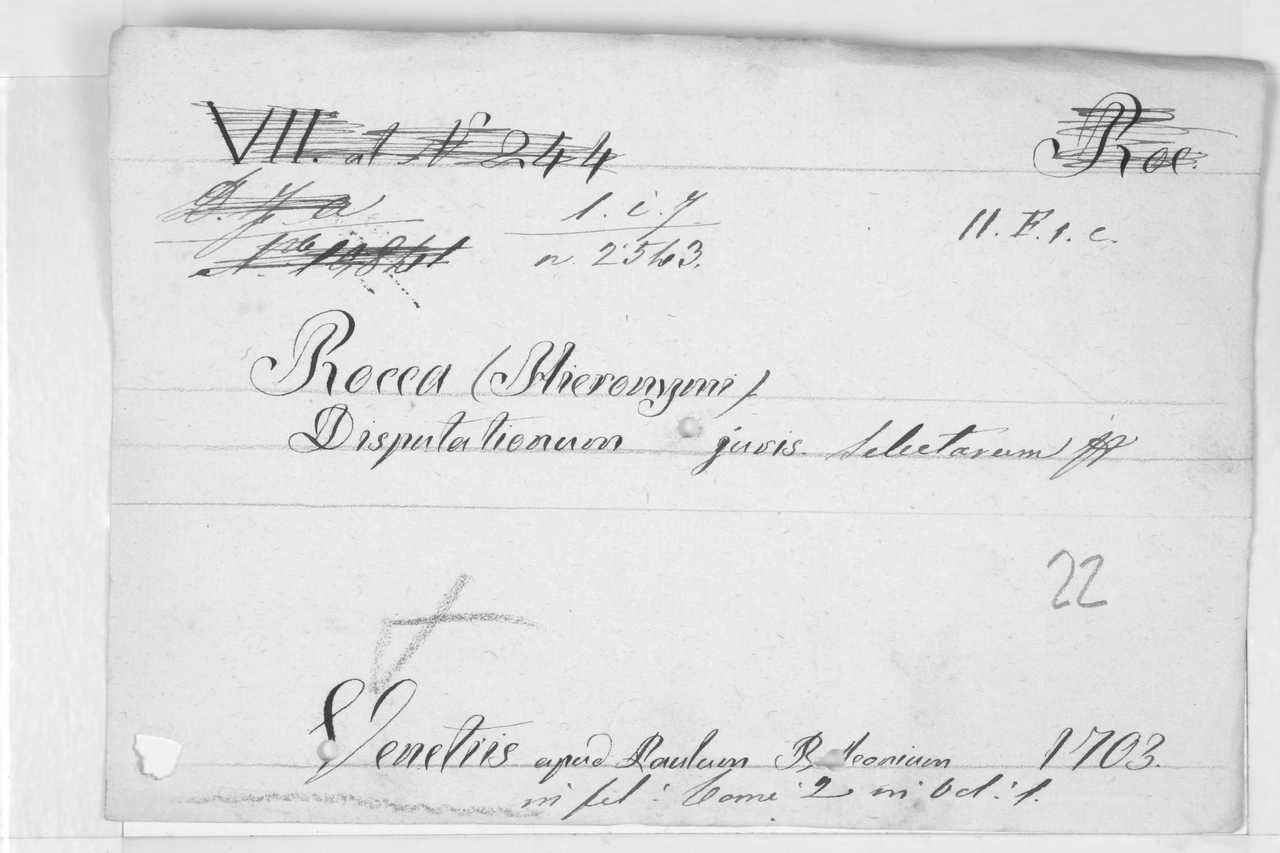 VII. al N° 244 Roc.
D. J. a 1. i. 7 11. F. 1. c.
n. 2563.
Rocca (Hieronymi)
Disputationum juris selectarum
22
Venetiis apud Paulum 1703.
in fol: Tomi 2 in vol: 1.